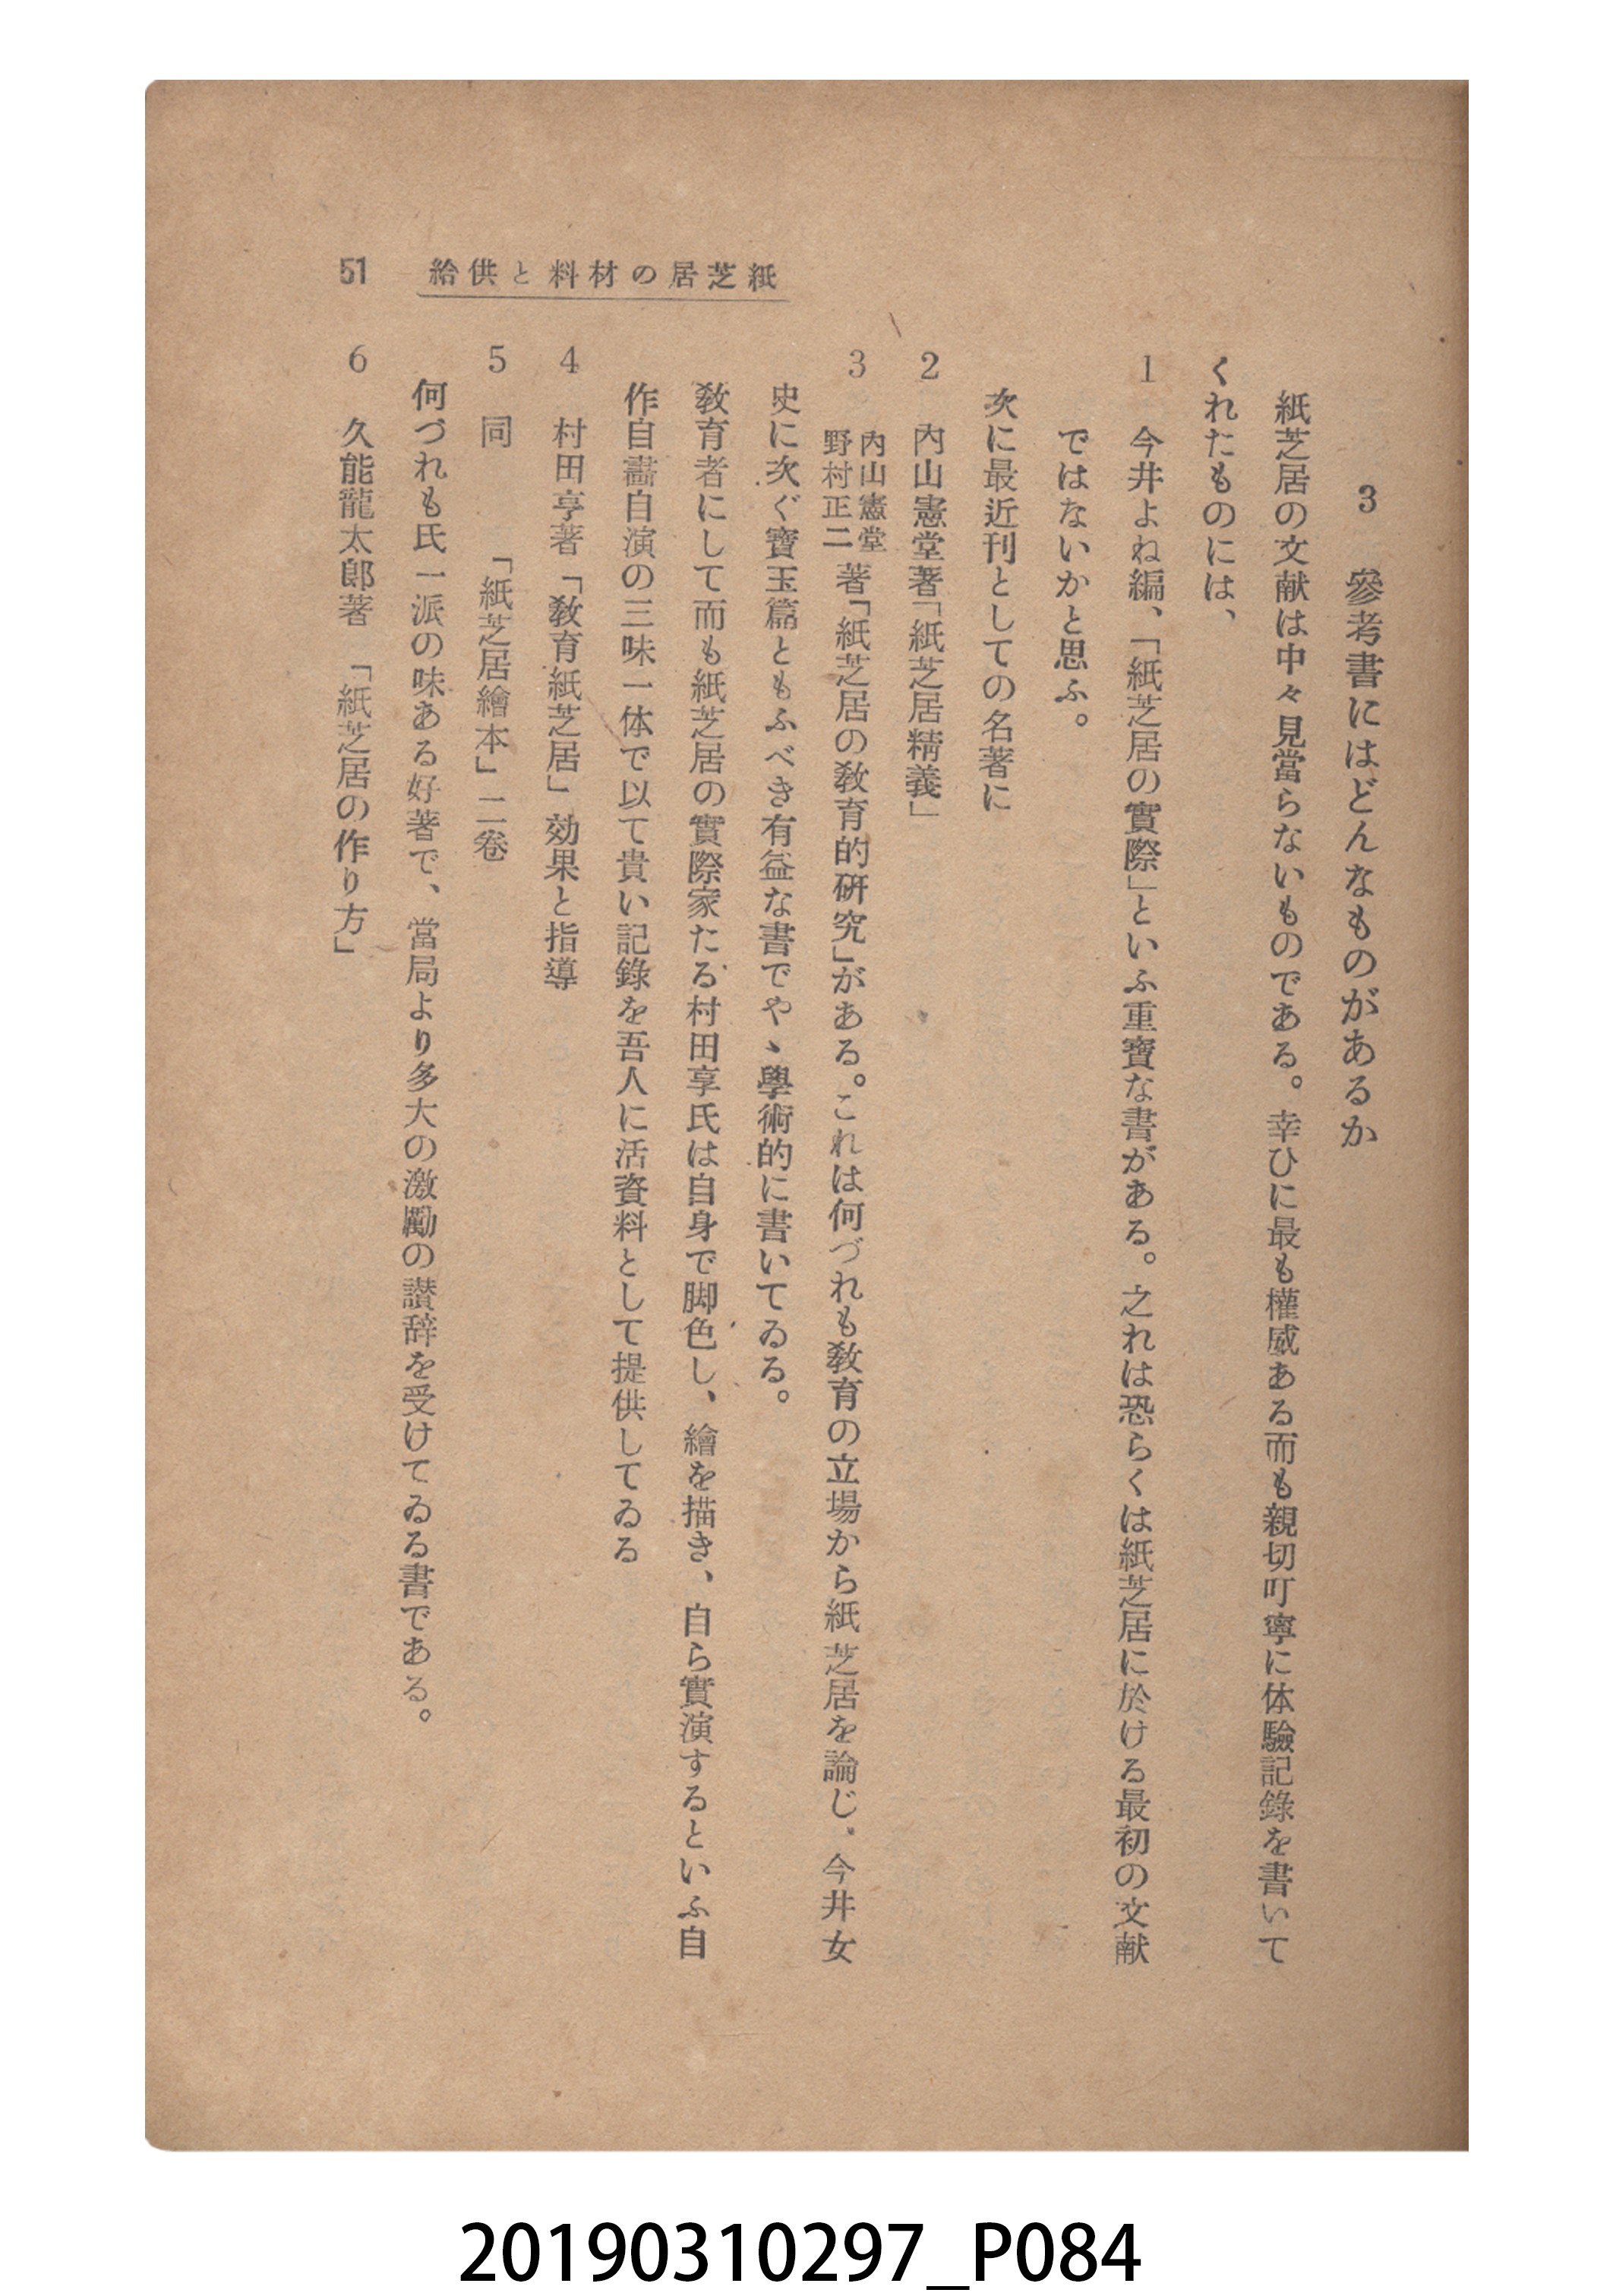 紙芝居の材料と供給 51
3 參考書にはどんなものがあるか
紙芝居の文献は中々見當らないものである。幸ひに最も權威ある而も親切叮寧に体驗記錄を書いて
くれたものには、
1 今井よね編、「紙芝居の實際」といふ重寶な書がある。之れは恐らくは紙芝居に於ける最初の文献
ではないかと思ふ。
次に最近刊としての名著に
2 內山憲堂著「紙芝居精義」
3 內山憲堂 野村正二 著「紙芝居の敎育的硏究」がある。これは何づれも敎育の立場から紙芝居を論じ、今井女
史に次ぐ寶玉篇ともふべき有益な書でやゝ學術的に書いてゐる。
敎育者にして而も紙芝居の實際家たる村田享氏は自身で脚色し、繪を描き、自ら實演するといふ自
作自畵自演の三味一体で以て貴い記錄を吾人に活資料として提供してゐる
4 村田亨著「敎育紙芝居」効果と指導
5 同 「紙芝居繪本」二卷
何づれも氏一派の味ある好著で、當局より多大の激勵の讃辞を受けてゐる書である。
6 久能龍太郎著 「紙芝居の作り方」
20190310297_P084